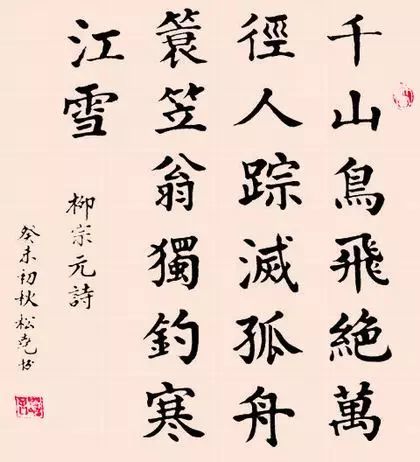 千山鳥飛絶萬
徑人踪滅孤舟
簑笠翁獨釣寒
江雪
柳宗元詩
癸未初秋松堯书